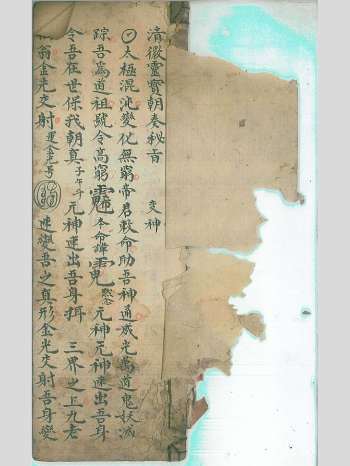 清微靈寳朝奏秘旨 变神
太極混沌變化無窮帝君敕命助吾神通威光萬道鬼妖滅
踪吾為道祖號令高穹 本命諱 黙念元神元神速出吾身
令吾在世保我朝真子午斗元神速出吾身揖 三界之上九老
翁金光交射運金光号 速變吾之真形金光交射吾身變